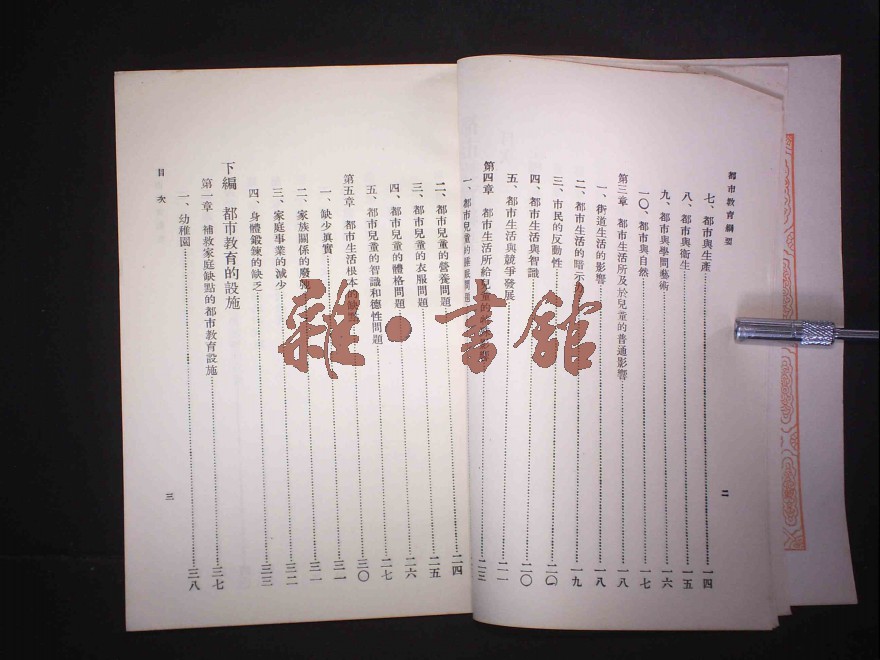 都市教育綱要
七、都市與生產 一四
八、都市與衞生 一五
九、都市與學問藝術 一六
一〇、都市與自然 一七
第三章 都市生活所及於兒童的普通影響 一八
一、街道生活的影響 一八
二、都市生活的暗示 一九
三、市民的反動性 二〇
四、都市生活與智識 二〇
五、都市生活與競爭發展 二一
第四章 都市生活所給兒童的 二三
一、都市兒童的睡眠問題
二
二、都市兒童的營養問題 二四
三、都市兒童的衣服問題 二五
四、都市兒童的體格問題 二六
五、都市兒童的智識和德性問題 二七
第五章 都市生活根本的 三〇
一、缺少眞實 三一
二、家族關係的廢 三一
三、家庭事業的減少 三二
四、身體鍛鍊的缺乏 三三
下編 都市教育的設施
第一章 補救家庭缺點的都市教育設施 三七
一、幼稚園 三八
目次
三
雜·書館